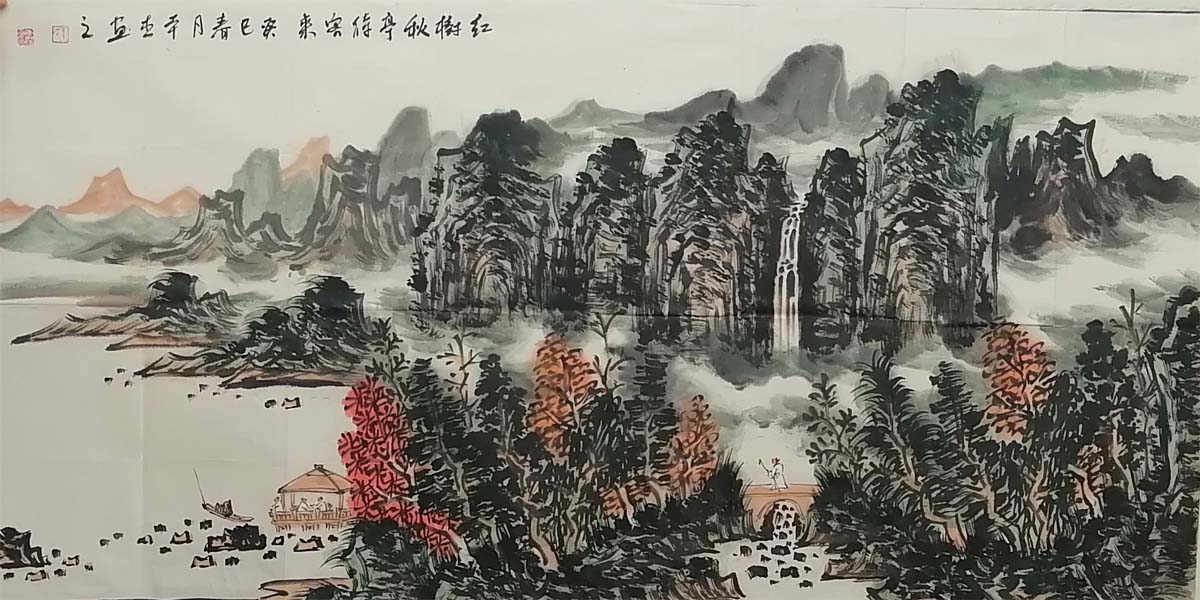 红樹秋亭待客来 癸巳春月 画之